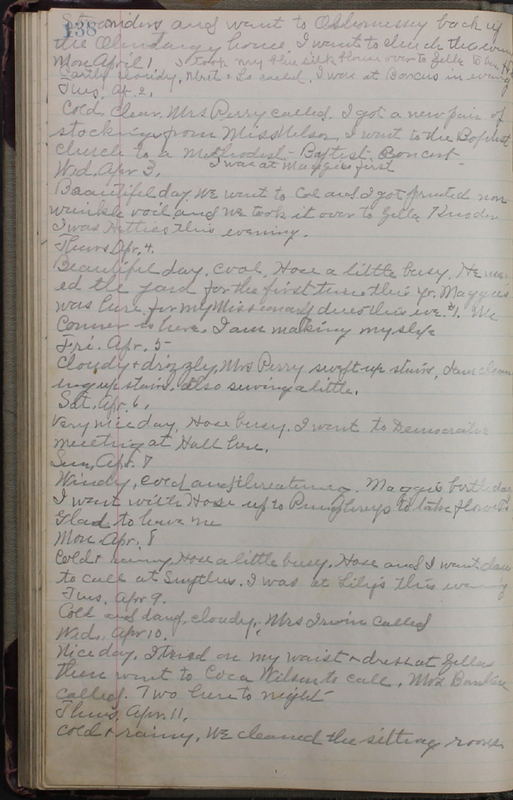 138
and went to back up
the house. I went to church this evening
Mon April 1. I took my blue silk over to Zella to
Partly cloudy, called, I was at in evening
Tues. Ap. 2.
Cold, clear. Mrs Perry called. I got a new pair of
stockings from Miss Wilson. I went to the Baptist
Church to a Methodist-Baptist Concert.
I was at Maggies first
Wed. Apr 3.
Beautiful day. We went to Col and I got printed non
wrinkle voil and we took it over to Zella
I was Hatties this evening.
Thurs Apr. 4.
Beautiful day. Cool. Hose a little busy. He mow
ed the yard for the first time this yr. Maggie
was here for my Missionary dues this eve. $1. Mc
Conner is here. I am making my slip
Fri. Apr. 5
Cloudy & drizzly, Mrs Perry swept up stairs, I am clean
ing up stairs. Also sewing a little.
Sat. Apr. 6.
Very nice day, Hose busy. I went to Democratic
meeting at Hall here.
Sun, Apr. 7
Windy, cold and threatening. Maggie's birthday
I went with Hose up to to take flowers
Glad to have me
Mon. Apr. 8
Cold & rainy, Hose a little busy. Hose and I went down
to call at Smythes. I was at Lily's this evening
Tues, Apr 9.
Cold and damp, cloudy, Mrs Irwin called
Wed. Apr 10.
Nice day, I tried on my waist & dress at Zellas
then went to Coca Wilson to call. Mrs
called. Two here to night
Thurs, Apr. 11.
Cold & rainy. We cleaned the sitting room